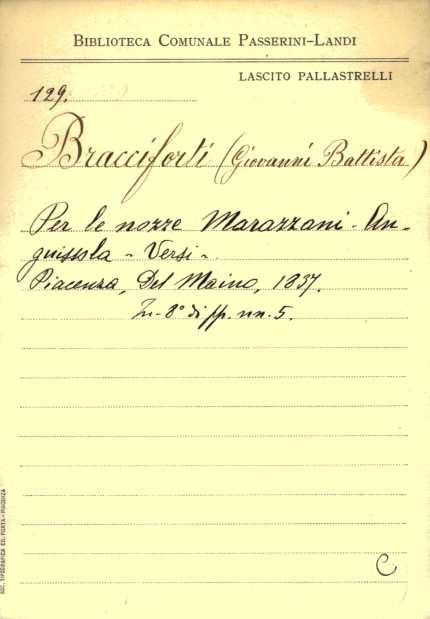 BIBLIOTECA COMUNALE PASSERINI-LANDI
LASCITO PALLASTRELLI
129.
Bracciforti (Giovanni Battista)
Per le nozze Marazzani-An-
guissola - Versi -
Piacenza, Del Maino, 1837.
In-8° di pp. nn. 5.
C
SOC. TIPOGRAFICA ED. PORTA - PIACENZA